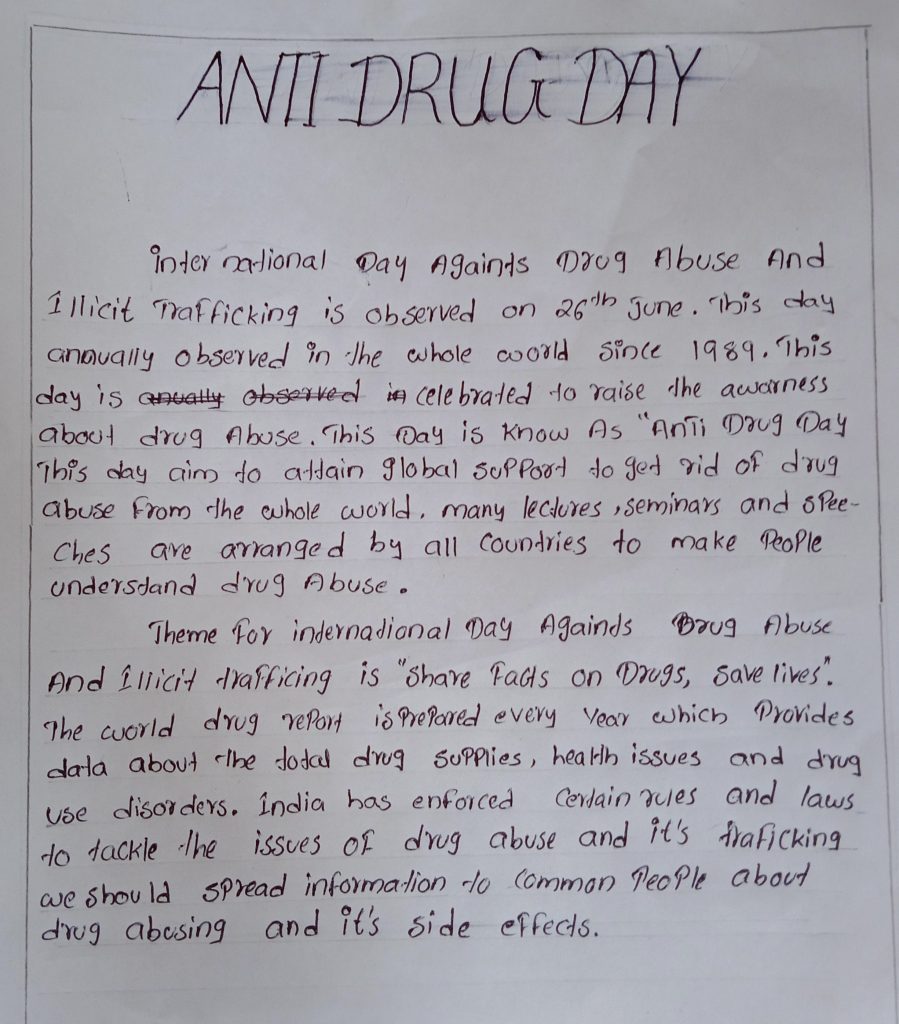 ANTI DRUG DAY
International Day Againts Drug Abuse And
Illicit Trafficking is observed on 26th June. This day
annually observed in the whole world since 1989. This
day is anually observed in celebrated to raise the awarness
about drug Abuse. This Day is know As "Anti Drug Day
This day aim to attain global support to get rid of drug
abuse from the whole world. many lectures, seminars and spee-
ches are arranged by all countries to make people
understand drug Abuse.
Theme for international Day Againds Drug Abuse
And Illicit trafficing is "Share Facts on Drugs, Save lives".
The world drug report is prepared every year which provides
data about the total drug supplies, health issues and drug
use disorders. India has enforced certain rules and laws
to tackle the issues of drug abuse and it's traficking
we should spread information to common people about
drug abusing and it's side effects.